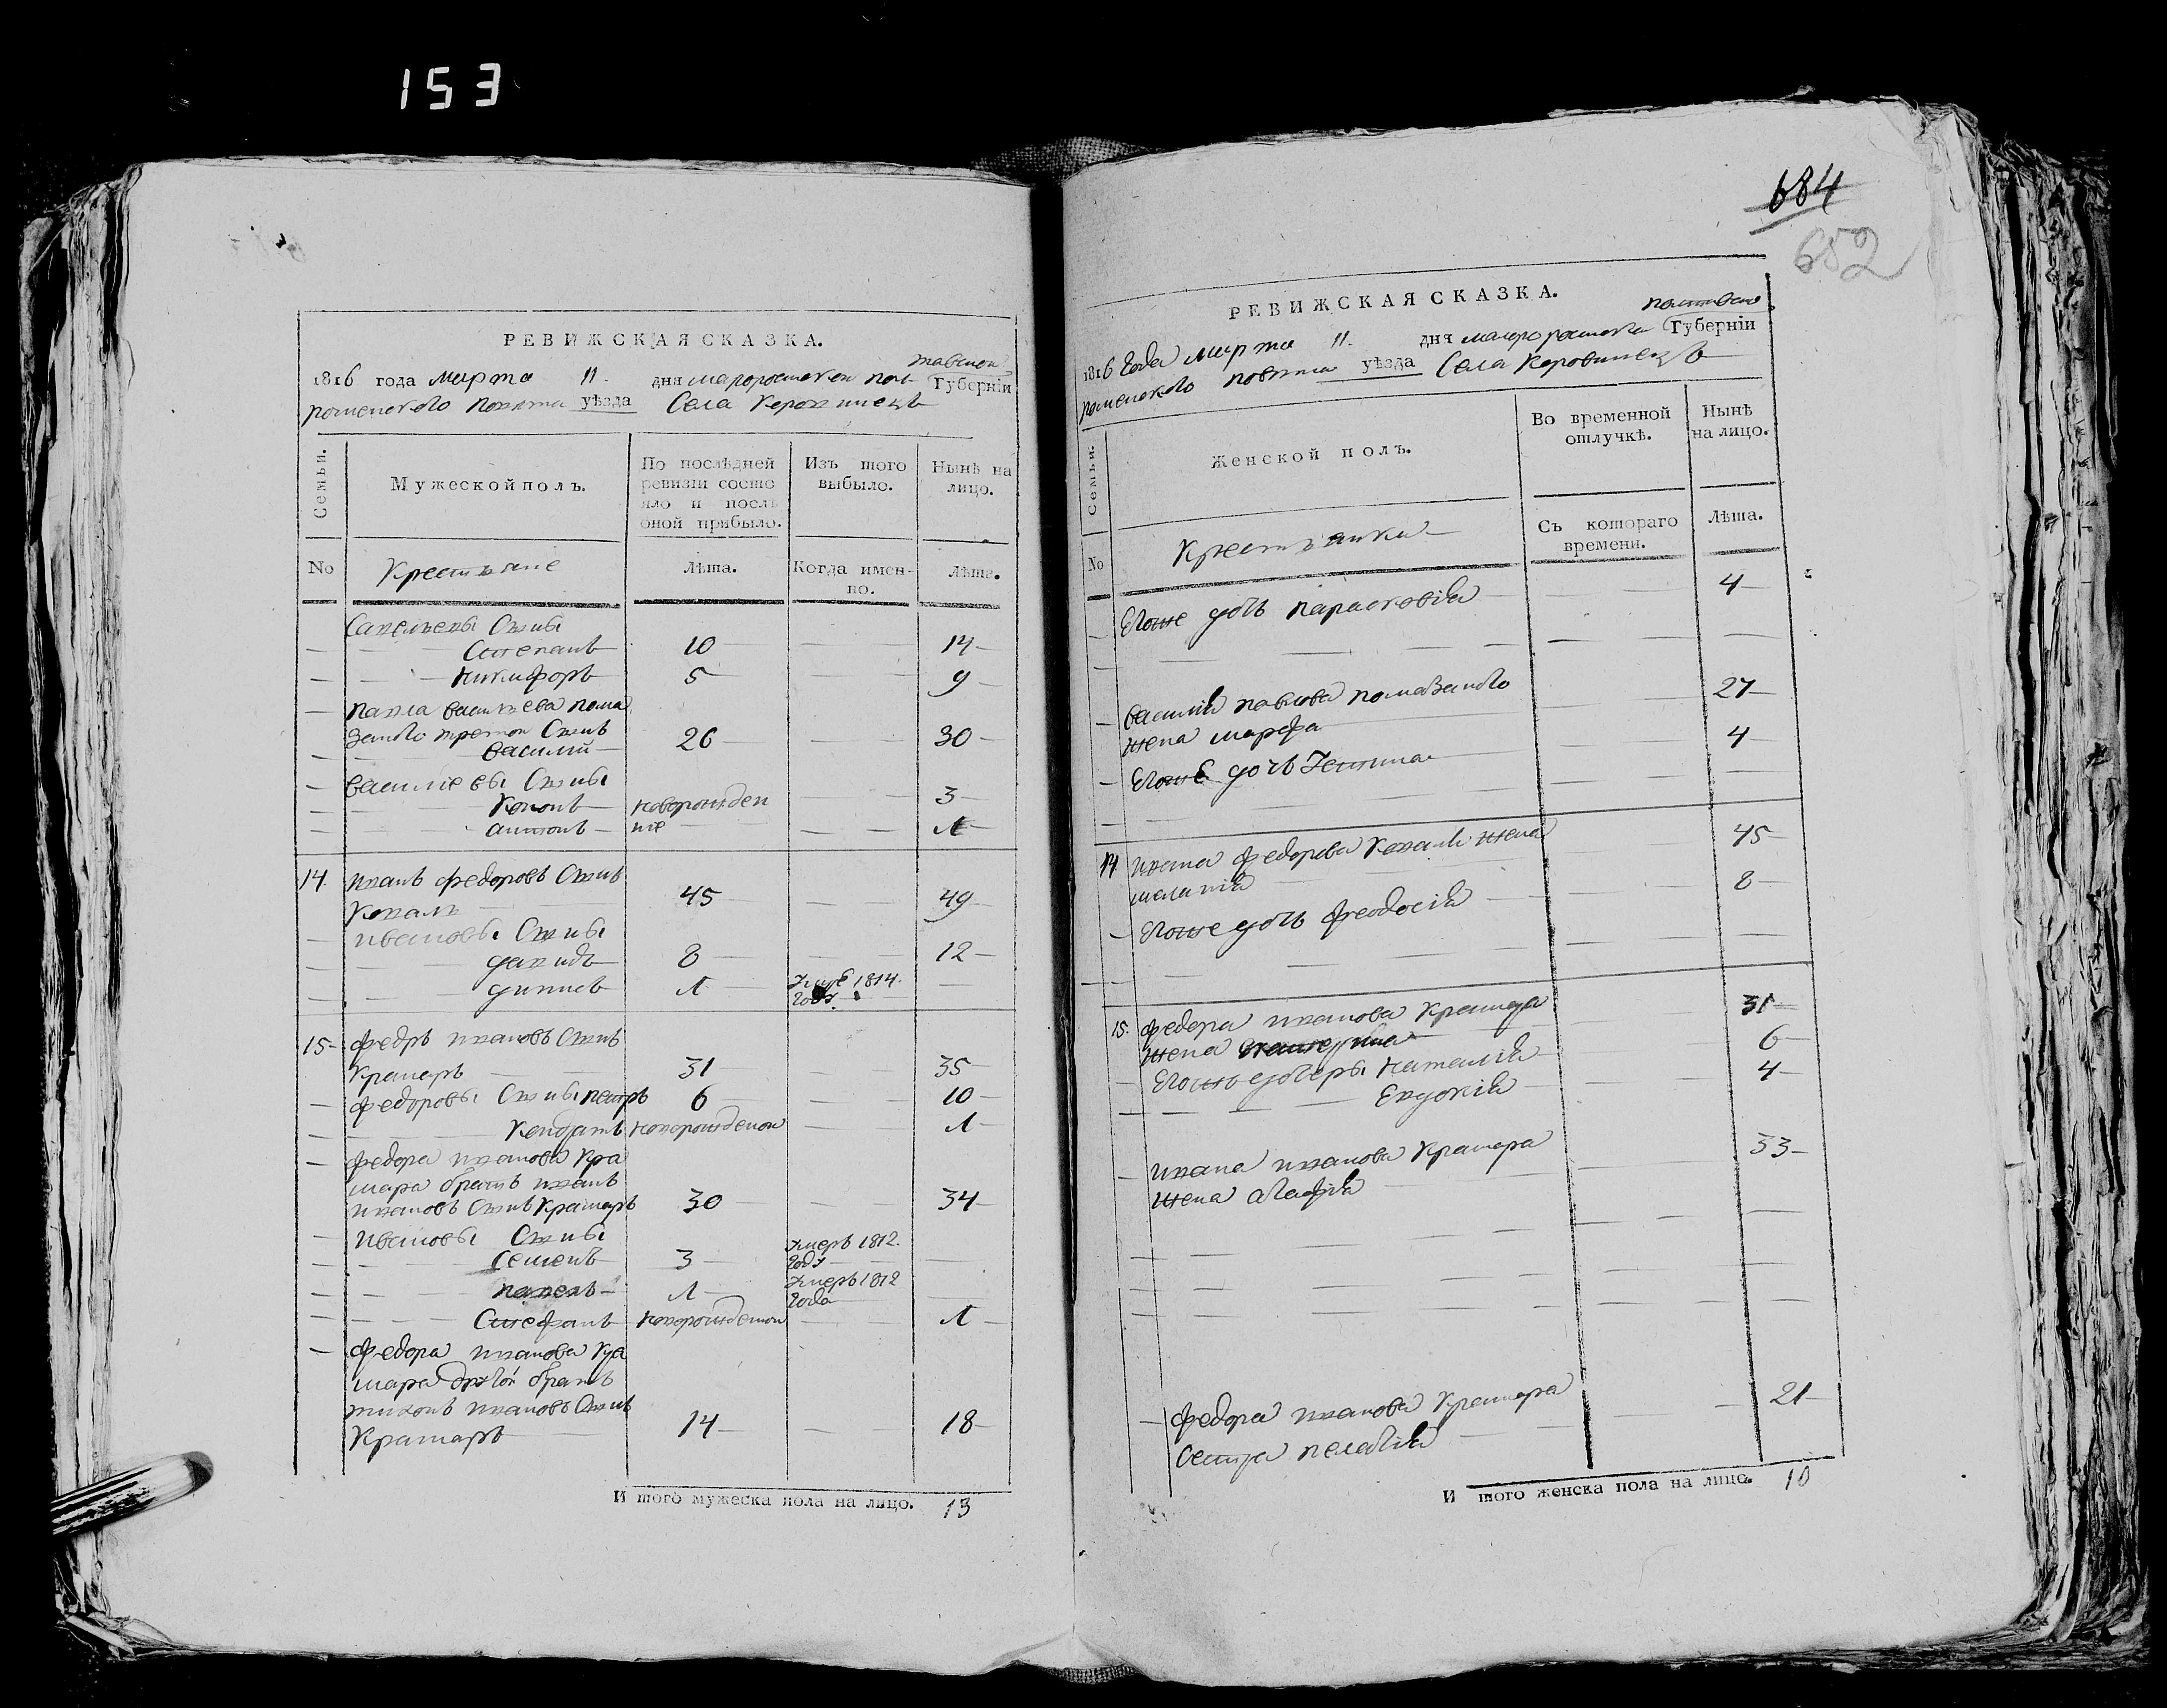 153
РЕВИЖСКАЯ СКАЗКА.
1816 года марта 11. дня малоросиской пол
тавской
Губерніи
роменского повята уѣзда Села Коровинецъ
Семьи.
Мужеской полъ.
По послѣдней
ревизіи состо
яло и послѣ
оной прибыло.
Изъ того
выбыло.
Нынѣ на
лицо.
No
Крестьяне
Лѣта.
Когда имен-
но.
Лѣта.
Савельевы Сыны
Степанъ 10 14
Никифоръ 5 9
павла васильева пома
заного третой Сынъ
василий 26 30
василіевы Сыны
Кононъ новорожден 3
антонъ ніе 1
14. иванъ федоровъ Сынъ
Коваль 45 49
ивановы Сыны
давидъ 8 12
1 1814.
году
15 федръ ивановъ Сынъ
Крамаръ 31 35
федоровы Сыны петръ 6 10
Кондратъ новорожденой 1
федора иванова Кра
мара братъ иванъ
ивановъ Сынъ Крамаръ 30 34
ивановы Сыны
Семенъ 3 умеръ 1812.
году
павелъ 1 умеръ 1812
года
Стефанъ новорожденой 1
федора иванова Кра
мара другой братъ
тихонъ ивановъ Сынъ
Крамаръ 14 18
И того мужеска пола на лицо. 13
684
652
РЕВИЖСКАЯ СКАЗКА.
1816 года марта 11. дня малоросиской
полтавской
Губерніи
роменского повята уѣзда Села Коровинецъ
Семьи.
Женской полъ.
Во временной
отлучкѣ.
Нынѣ
на лицо.
No
Крестьянки
Съ котораго
времени.
Лѣта.
Егоже дочь парасковія 4
василія павлова помазаного
жена марфа 27
Егоже дочь Устина 4
14 ивана федорова Коваля жена
меланія 45
Егоже дочь феодосія 8
15. федора иванова Крамара
жена 31
Егожъ дочеры наталія 6
Евдокія 4
ивана иванова Крамара
жена агафія 33
федора иванова Крамара
Сестра пелагія 21
И того женска пола на лицо. 10